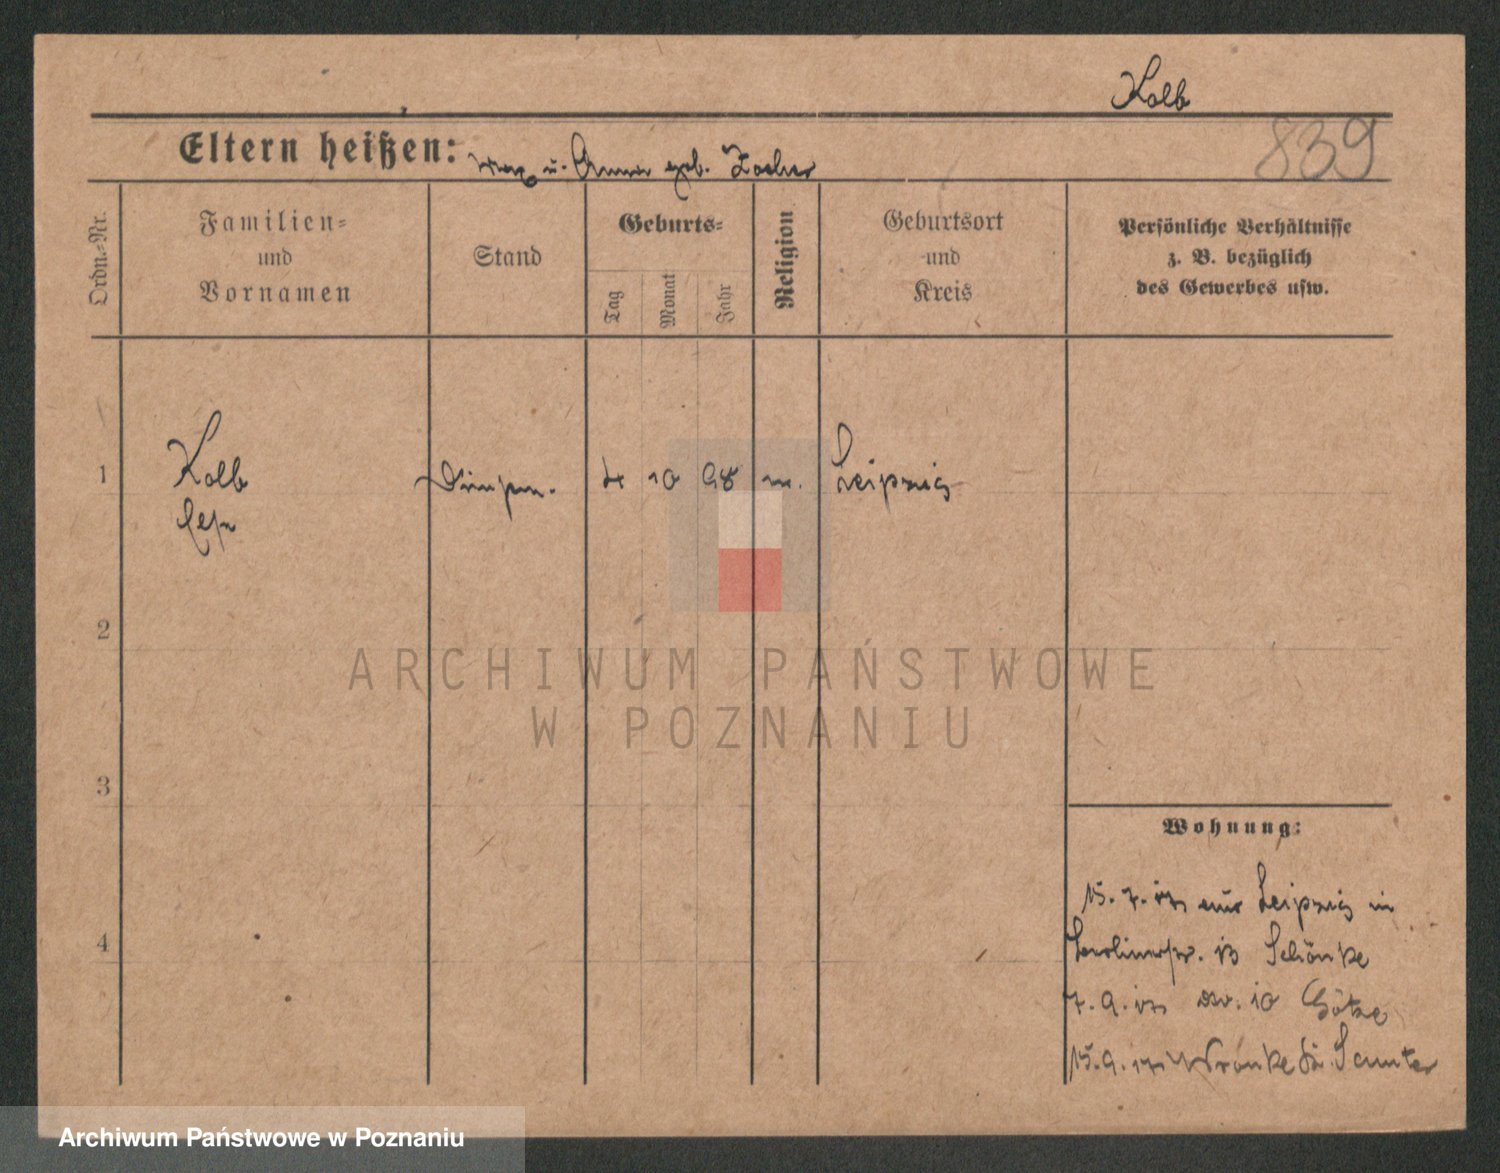 Kolb
839
Eltern heißen: Max u. Anna geb. Zocher
Ordn.-Nr.
Familien-
und
Vornamen
Stand
Geburts-
Tag
Monat
Jahr
Religion
Geburtsort
und
Kreis
Persönliche Verhältnisse
z. B. bezüglich
des Gewerbes usw.
1 Kolb 10 98 Leipzig
2
3
4
Wohnung:
15. 7. aus Leipzig in
Berlinerstr. 13 Schönke
7. 9. 10 Götze
15. 9. Wronke Kr. Samter
ARCHIWUM PAŃSTWOWE
W POZNANIU
Archiwum Państwowe w Poznaniu